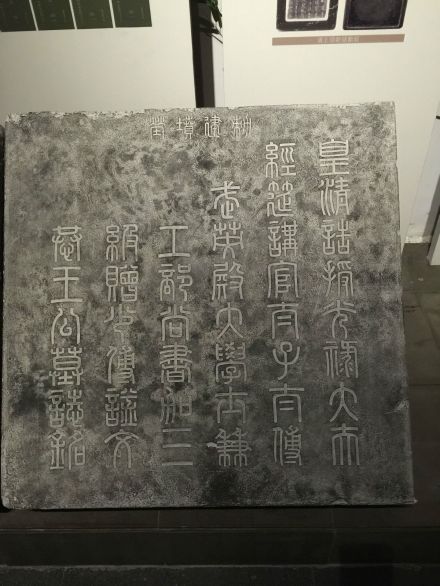 勅建墳塋
皇清誥授光祿大夫
經筵講官太子太傅
武英殿大學士兼
工部尚書加三
級贈少傅諡文
恭王公墓誌銘